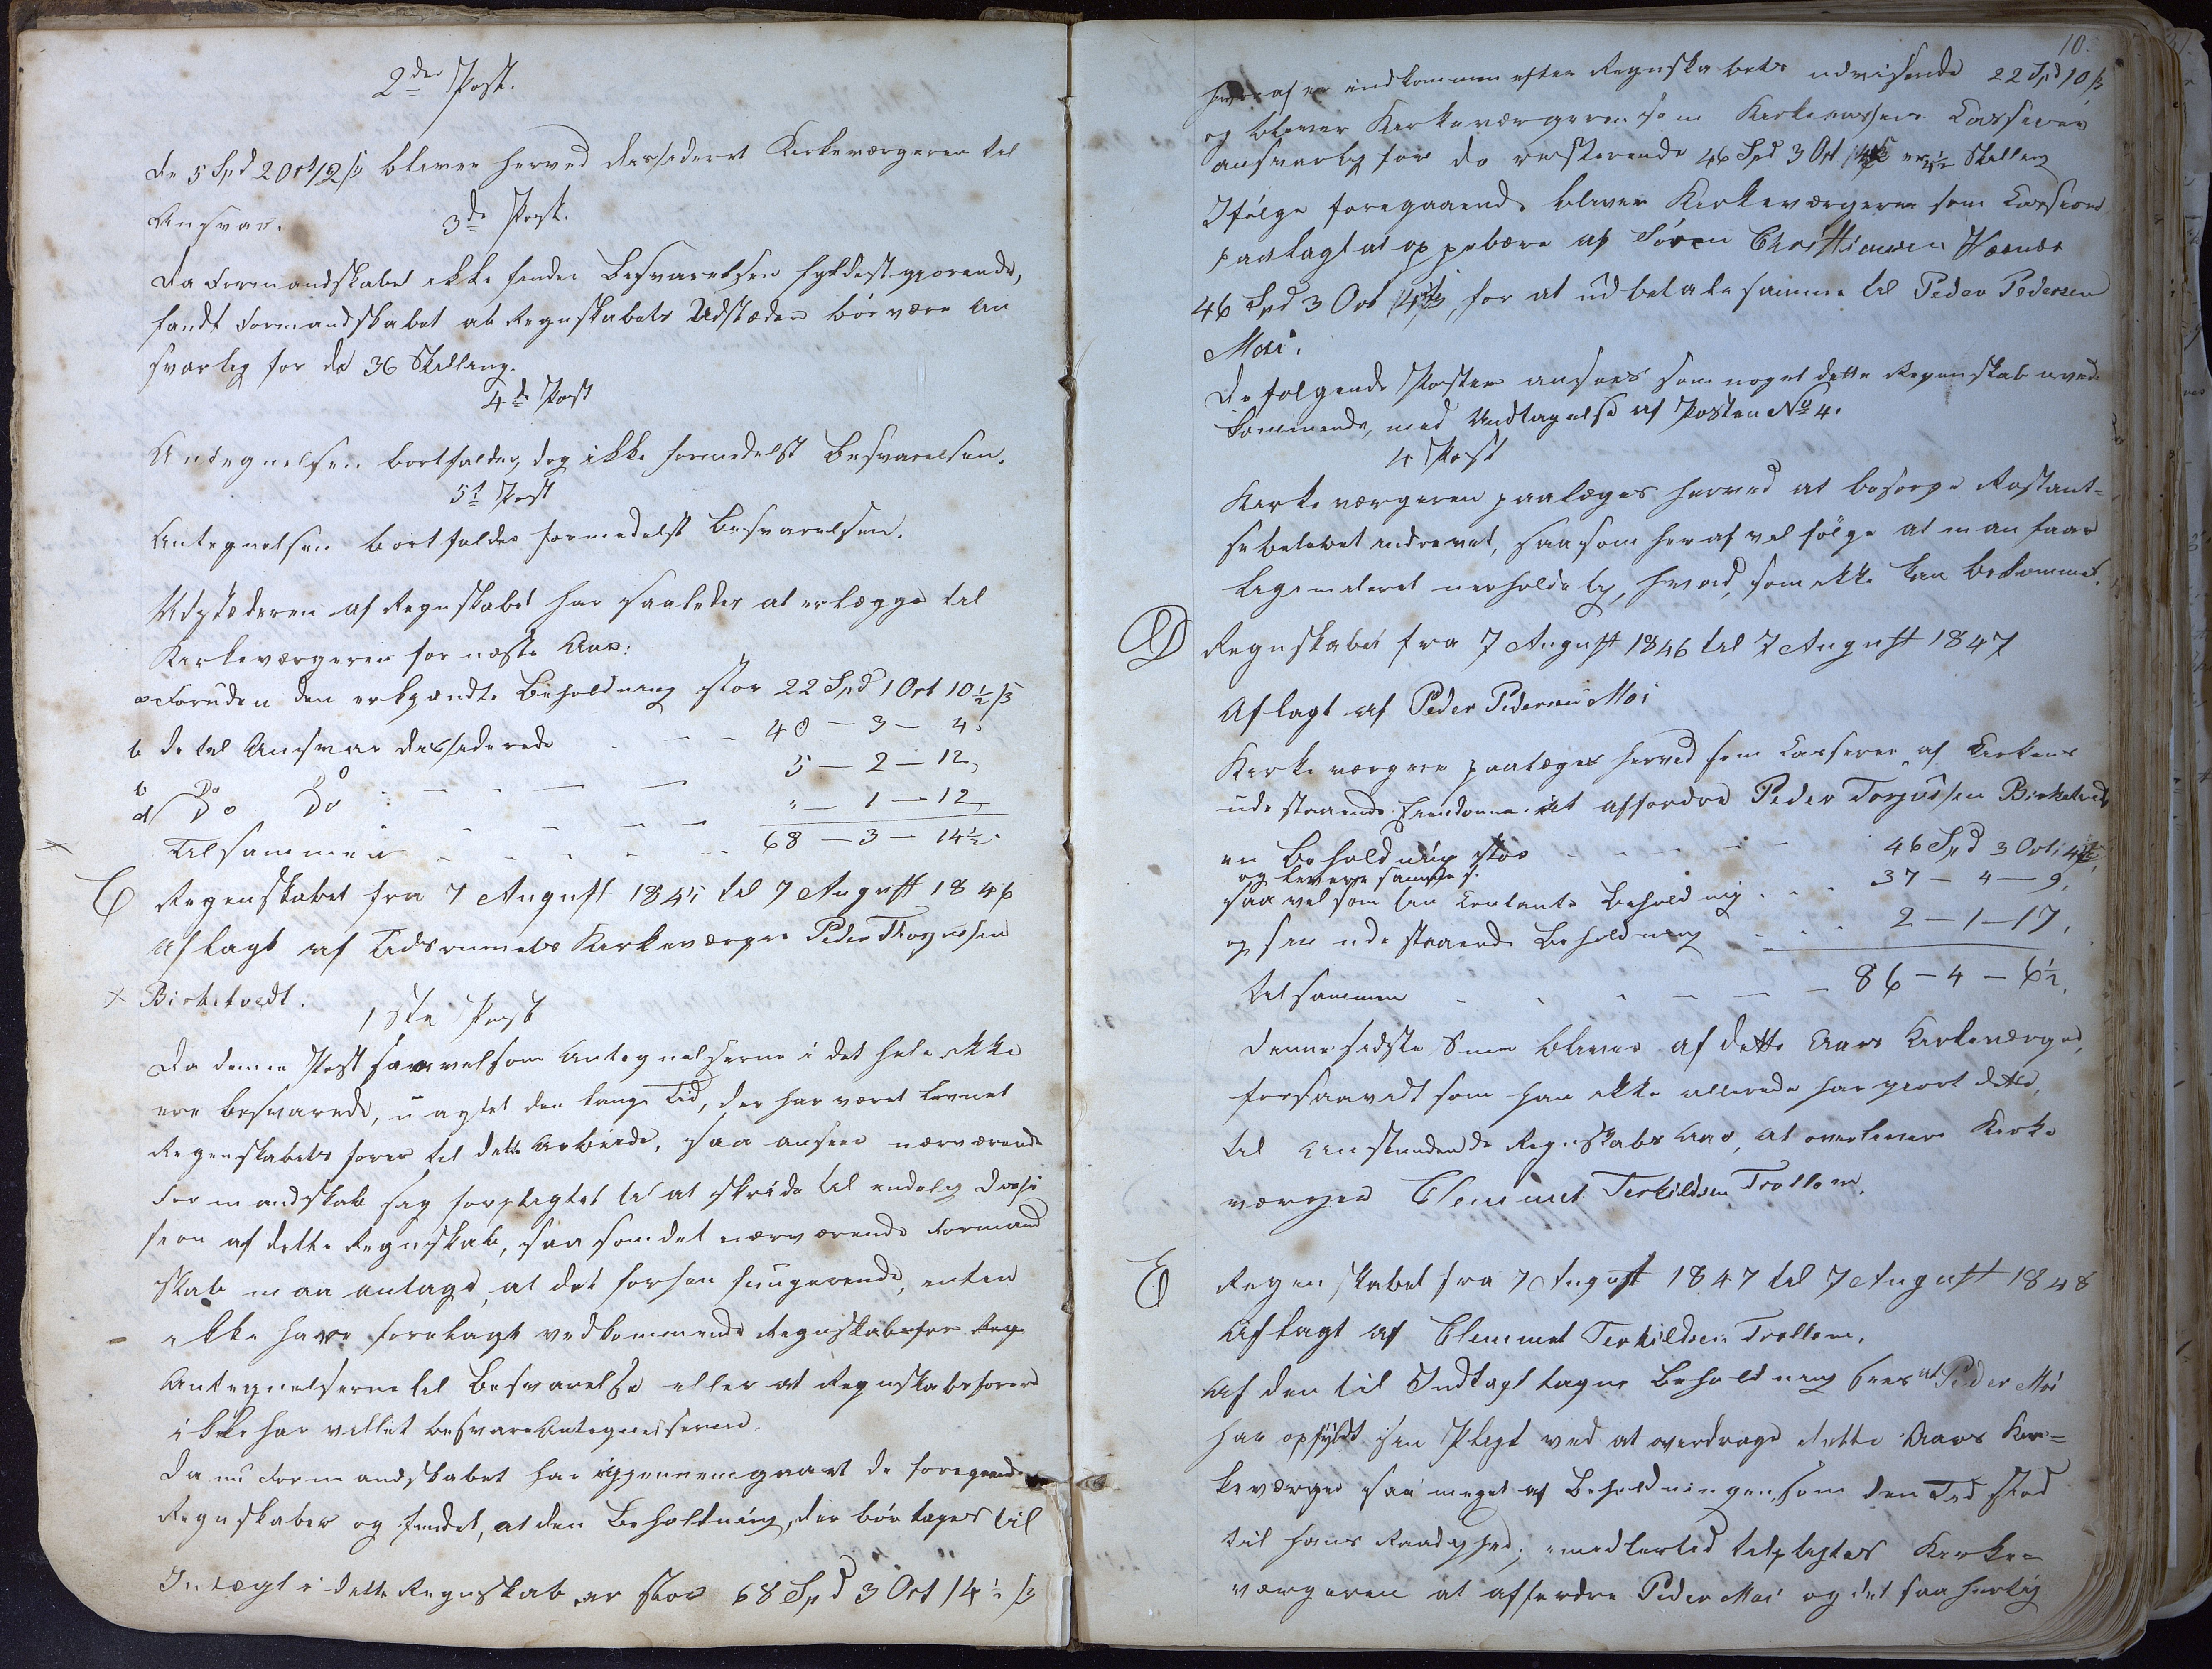 2den Post.
De 5 Spd 2 Ort 12 ß bliver herved desideret Kirkeværgeren til
Ansvar.
3de Post.
Da Formandskabet ikke finder Besvarelsen fyldestgjørende,
fandt Formandskabet at Regnskabets Udsteder bør være An
svarlig for de 36 Skilling.
4de Post
Antegnelsen bortfalder, dog ikke formedelst Besvarelsen.
5te Post
Antegnelsen bortfalder formedelst Besvarelsen.
Udstederen af Regnskabet har saaledes at erlægge til
Kirkeværgeren for næste Aar:
a Foruden den erkjændte Beholdning stor 22 Spd 1 Ort 10½ ß
b de til Ansvar desiderede - - - 40 - 3 - 4.
c Do Do - - - 5 - 2 - 12,
d Do Do - - - " - 1 - 12
Tilsammen - - - 68 - 3 - 14½.
C Regenskabet fra 7 August 1845 til 7 August 1846
aflagt af Tidsrummets Kirkeværge Peder Torgussen
Birketvedt.
1ste Post
Da denne Post saavelsom Antegnelserne i det hele ikke
ere besvarede, uagtet den lange Tid, der har været levnet
Regenskabets fører til dette Arbeide, saa anseer nærværende
Formandskab sig forpligtet til at skride til endelig Deci
sion af dette Regnskab, saasom det nærværende Formand
skab maa antage, at det forhen fungerende, enten
ikke have forelagt vedkommende Regnskabsfører
Antegnelserne til Besvarelse eller at Regnskabsføreren
ikke har villet besvare Antegnelserne.
Da nu Formandskabet har igjennemgaaet de foregaaende
Regnskaber og fundet, at den Beholdning, der bør tages til
Indtægt i dette Regnskab er stor 68 Spd 3 Ort 14½ ß
10.
hvoraf er indkommen efter Regnskabets udvisende 22 Spd 10 ß
og bliver Kirkeværgeren som Kirkecassens Casserer
ansvarlig for de resterende 46 Spd 3 Ort 4½ Skilling
Ifølge foregaaende bliver Kirkeværgeren som Casserer
paalagt at oppebære af Søren Christiansen
46 Spd 3 Ort 4½ ß, for at udbetale samme til Peder Pedersen
Moi.
De følgende Poster ansees som noget dette Regenskab uved
kommende, med Undtagelse af Posten No 4.
4 Post
Kirkeværgeren paalægges herved at besørge Restant-
sebeløbet inddrevet, saasom heraf vil følge at man faar
legimeteret uerholdelig, hvad, som ikke kan bekommes.
D Regnskabet fra 7 August 1846 til 7 August 1847
Aflagt af Peder Pedersen Moi
Kirkeværgen paalægges herved som Casserer af Kirkens
udestaaende Eiendomme at affordre Peder Torgussen Birketvedt
en Beholdning stor - - - 46 Spd 3 Ort 4½,
og levere samme
saavelsom sin Contante Beholdning - - 37 - 4 - 9,
og sin udestaaende Beholdning - - - 2 - 1 - 17,
tilsammen - - - 86 - 4 - 6½,
Denne sidste Sum bliver af dette Aars Kirkeværge,
forsaavidt som han ikke allerede har gjort dette,
til Anstundende Regnskabs Aar, at overlevere Kirke
værgen Clemmet Terkildsen Trollom.
E Regenskabet fra 7 August 1847 til 7 August 1848
Aflagt af Clemmet Terkildsen Trollom.
Af den til Indtægt tagne Beholdning sees at Peder Moi
har opfyldt sin Pligt ved at overdrage dette Aars Kir=
keværge saa meget af Beholdningen, som den Tid stod
til hans Raadighed; imidlertid tilpligtes Kirke=
værgeren at affordre Peder Moi og det saa hurtig